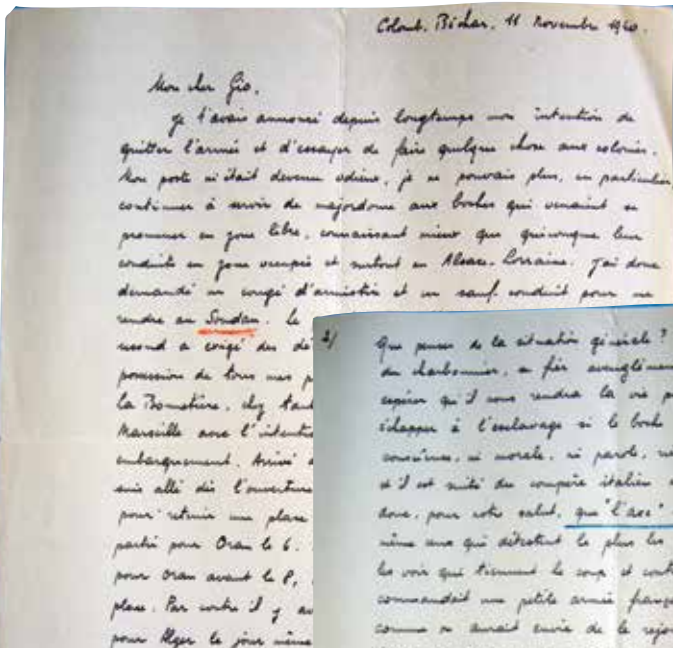 Colomb. Béchar, 11 Novembre 1940.
Mon cher Gio,
Je t'avais annoncé depuis longtemps mon intention de
quitter l'armée et d'essayer de faire quelque chose aux colonies.
Mon poste m'était devenu odieux, je ne pouvais plus, en particulier,
continuer à servir de majordome aux boches qui venaient se
promener en zone libre, connaissant mieux que quiconque leur
conduite en zone occupée et surtout en Alsace-Lorraine. J'ai donc
demandé un congé d'armistice et un sauf-conduit pour me
rendre au Soudan. Le
second a exigé des dé
possession de tous mes p
la tant
Marseille avec l'intenti
embarquement. Arrivé à
suis allé dès l'ouverture
pour retenir une place
partir pour Oran le 6.
pour Oran avant le 8,
place. Par contre il y av
pour Alger le jour même
2/
Que penser de la situation générale ?
du charbonnier, se fier aveuglément
espérer qu'il nous rendra la vie p
échapper à l'esclavage si le boche
conscience, ni morale, ni parole, ni
et il est suivi du compère italien
donc, pour notre salut, que "l'axe"
même ceux qui détestent le plus les
les voir qui tiennent le coup et cont
commandait une petite armée franç
comme on aurait envie de le rejo